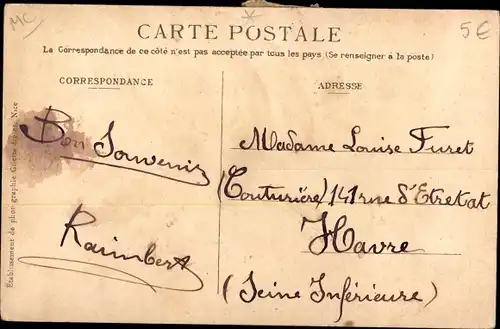 MC
5€
CARTE POSTALE
La Correspondance de ce côté n'est pas acceptée par tous les pays (Se renseigner à la poste)
CORRESPONDANCE
ADRESSE
Bon Souvenir
Raimbert
Madame Louise Furet
(Couturière) 141 rue d'Etretat
Havre
(Seine Inférieure)
Établissement de photographie Giletta frères, Nice